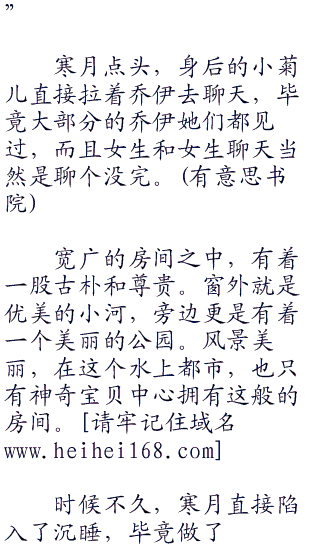 ”
寒月点头，身后的小菊
儿直接拉着乔伊去聊天，毕
竟大部分的乔伊她们都见
过，而且女生和女生聊天当
然是聊个没完。(有意思书
院)
宽广的房间之中，有着
一股古朴和尊贵。窗外就是
优美的小河，旁边更是有着
一个美丽的公园。风景美
丽，在这个水上都市，也只
有神奇宝贝中心拥有这般的
房间。[请牢记住域名
www.heihei168.com]
时候不久，寒月直接陷
入了沉睡，毕竟做了